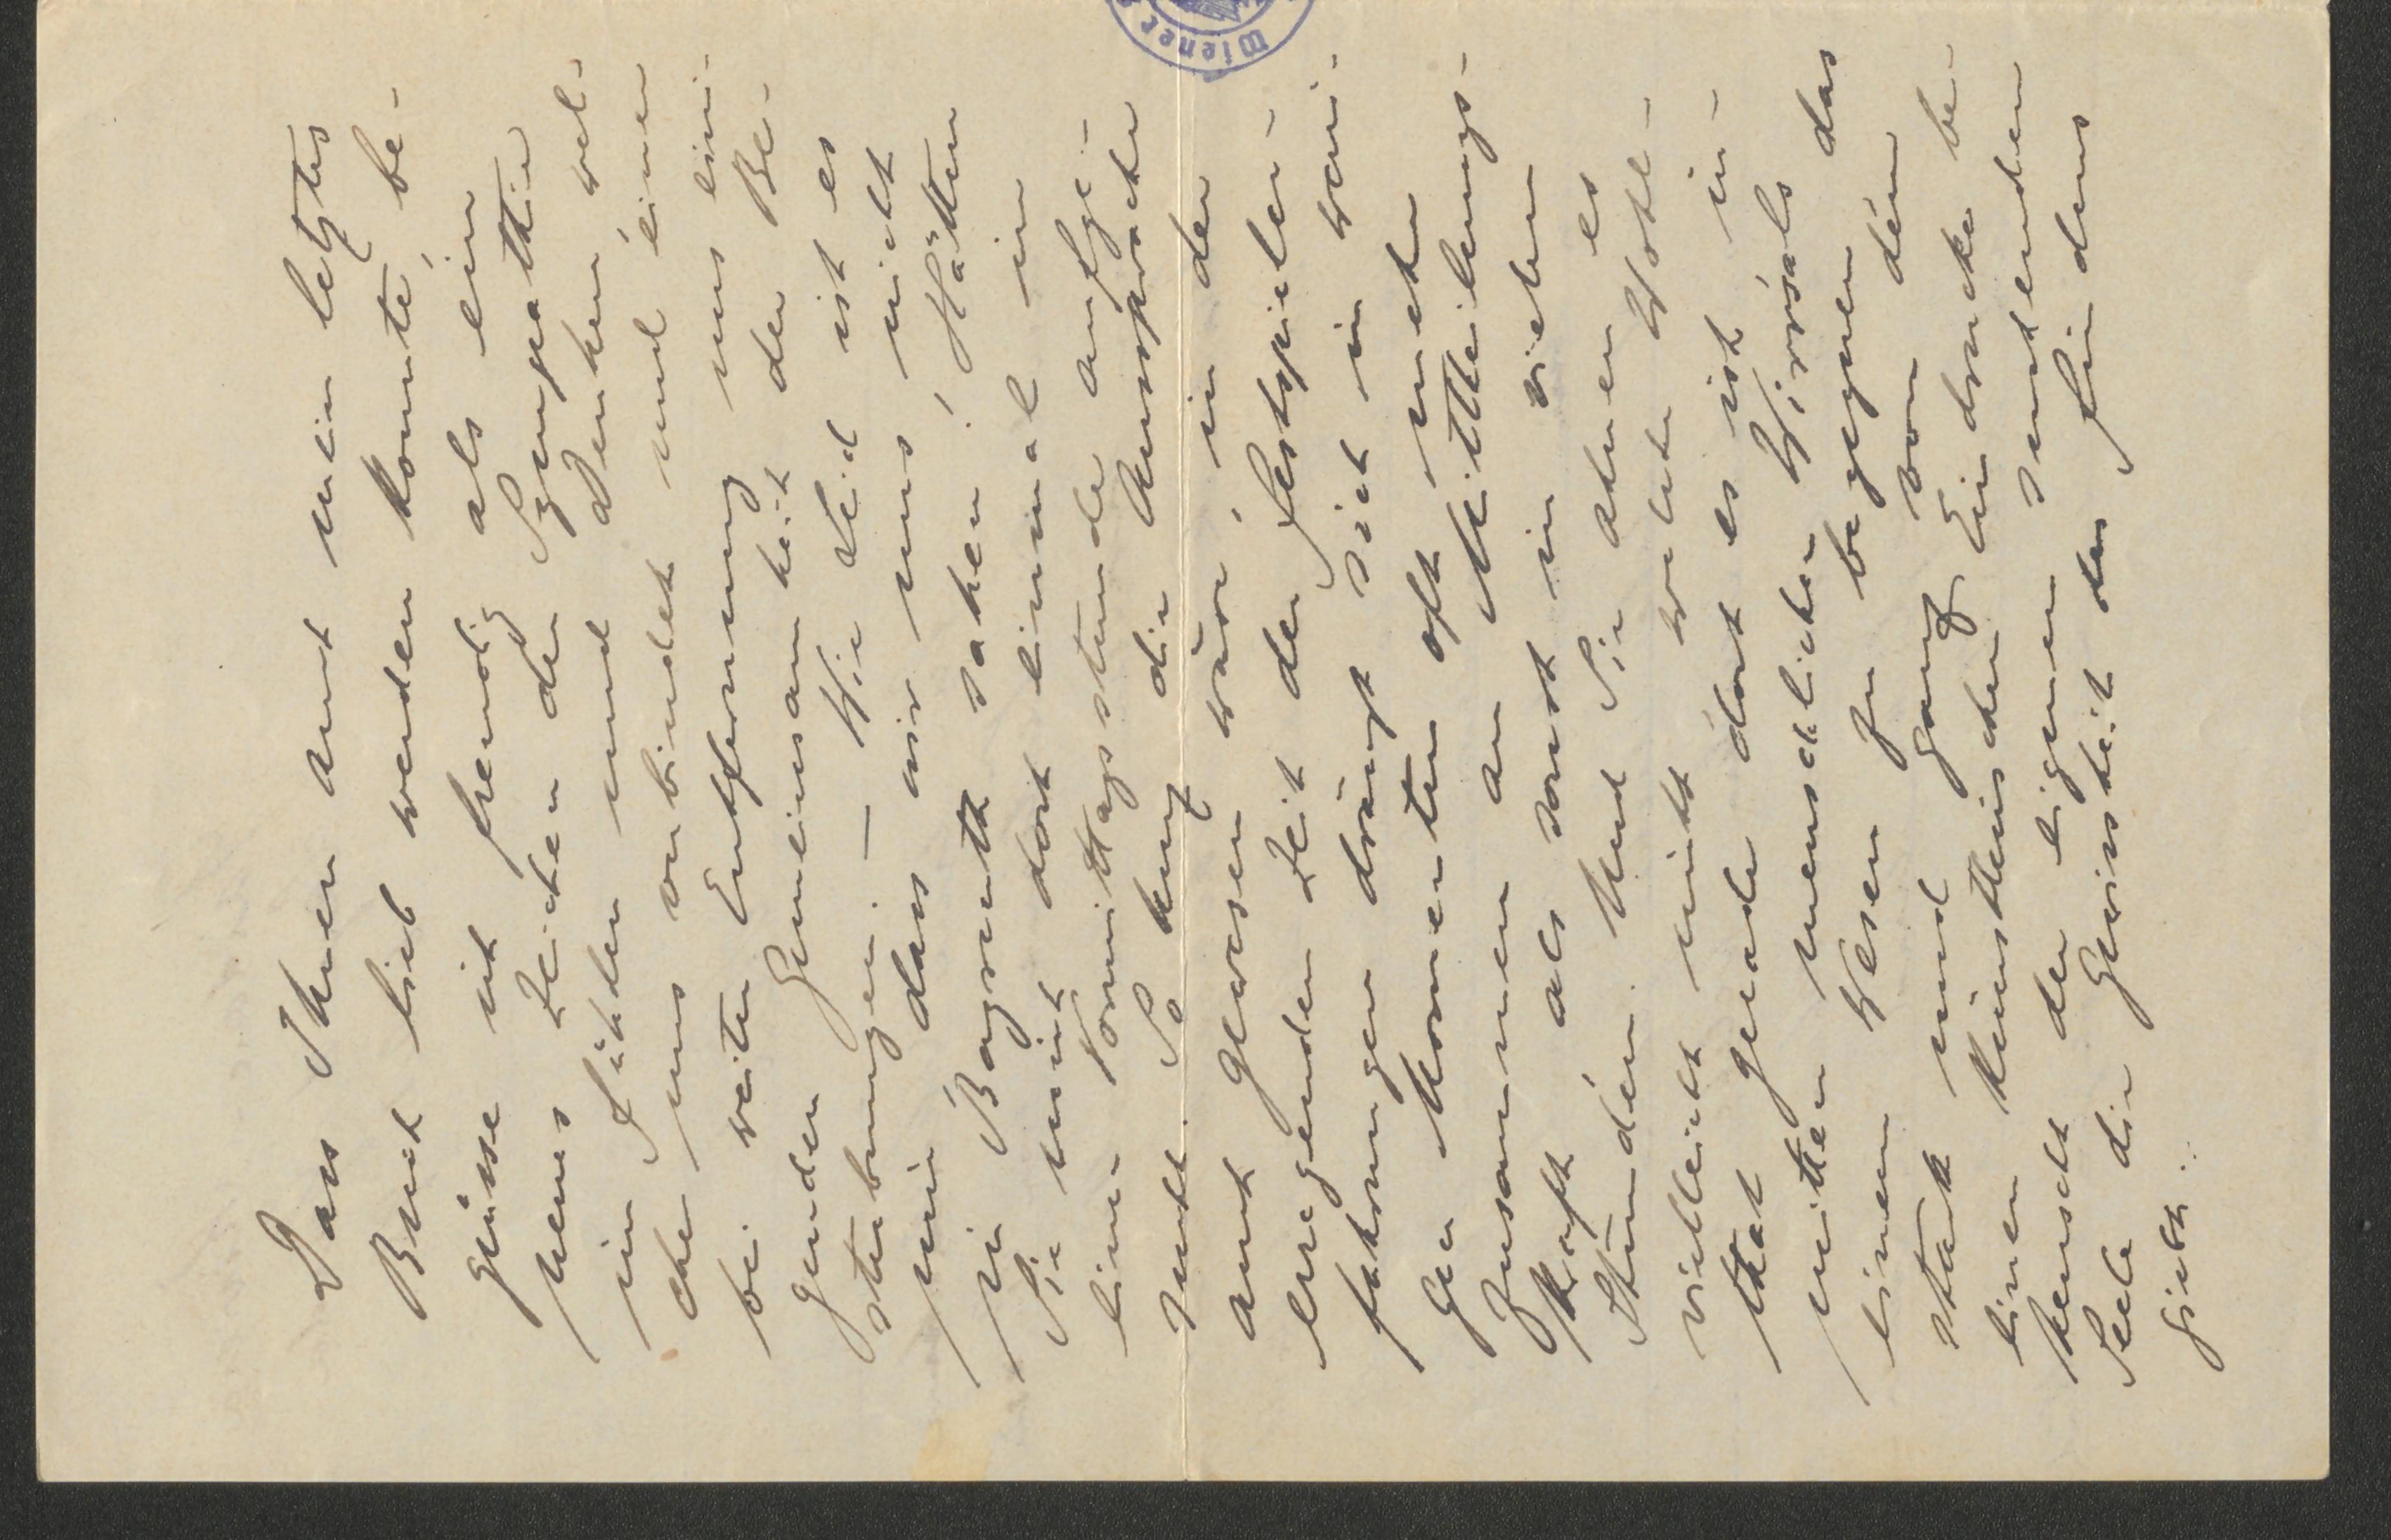 Dass Ihnen auch mein letztes
Buch lieb werden konnte, be-
grüsse ich freudig als ein
neues Zeichen der Sympathie
im Fühlen und Denken, wel-
che uns verbindet und einen
bei weiter Entfernung uns eini-
genden Gemeinsamkeit der Be-
strebungen. — Wie leid ist es
mir dass wir uns nicht
in Bayreuth sahen! Hätten
Sie mich dort einmal in
einer Vormittagsstunde aufge-
sucht. So kurz die Aussprache
auch gewesen wäre, in der
erregenden Zeit der Festspieler-
fahrungen drängt sich in weni-
gen Momenten oft mehr
zusammen an Mittheilungs-
kraft als sonst in vielen
Stunden. Und Sie ahnen es
vielleicht nicht welche Wohl-
that gerade dort es ist in-
mitten menschlichen Wirrsals das
einem Wesen zu begegnen dem
statt und ganz von dem
einen künstlerischen Eindrucke be-
herrscht der eigenen suchenden
Seele die Gewissheit des Findens
giebt.
Wiener